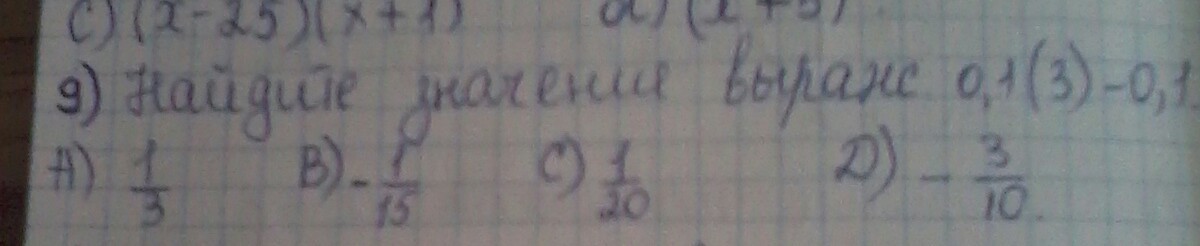 C) (x-25)(x+1) d) (x+5)
9) Найдите значении выраж 0,1(3)-0,1
A) 1/3 B) -1/15 C) 1/20 D) -3/10.